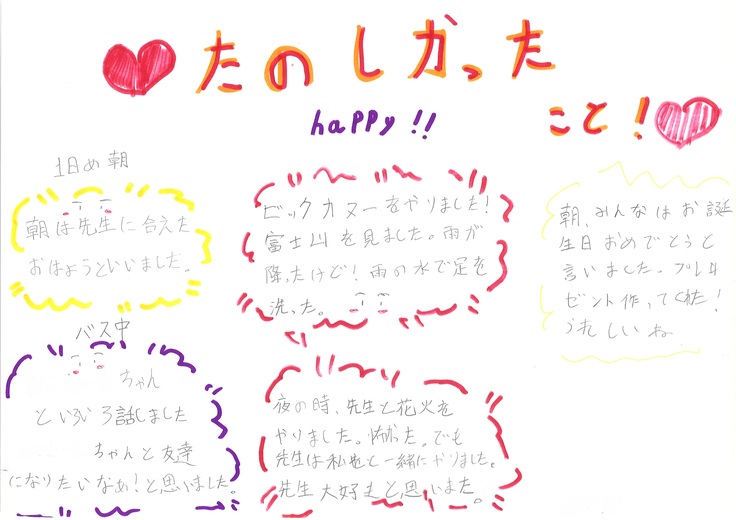 たのしかった
こと!
happy!!
1日め朝
朝は先生に合えた
おはようといいました。
バス中
ちゃん
といろいろ話しました
ちゃんと友達
になりたいなぁ!と思いました。
ビックカヌーをやりました!
富士山を見ました。雨が
降ったけど!雨の水で足を
洗った。
夜の時、先生と花火を
やりました。怖かった。でも
先生は私達と一緒にやりました。
先生大好きと思いました。
朝、みんなはお誕
生日おめでとうと
言いました。プレ
ゼント作ってくれた!
うれしいね